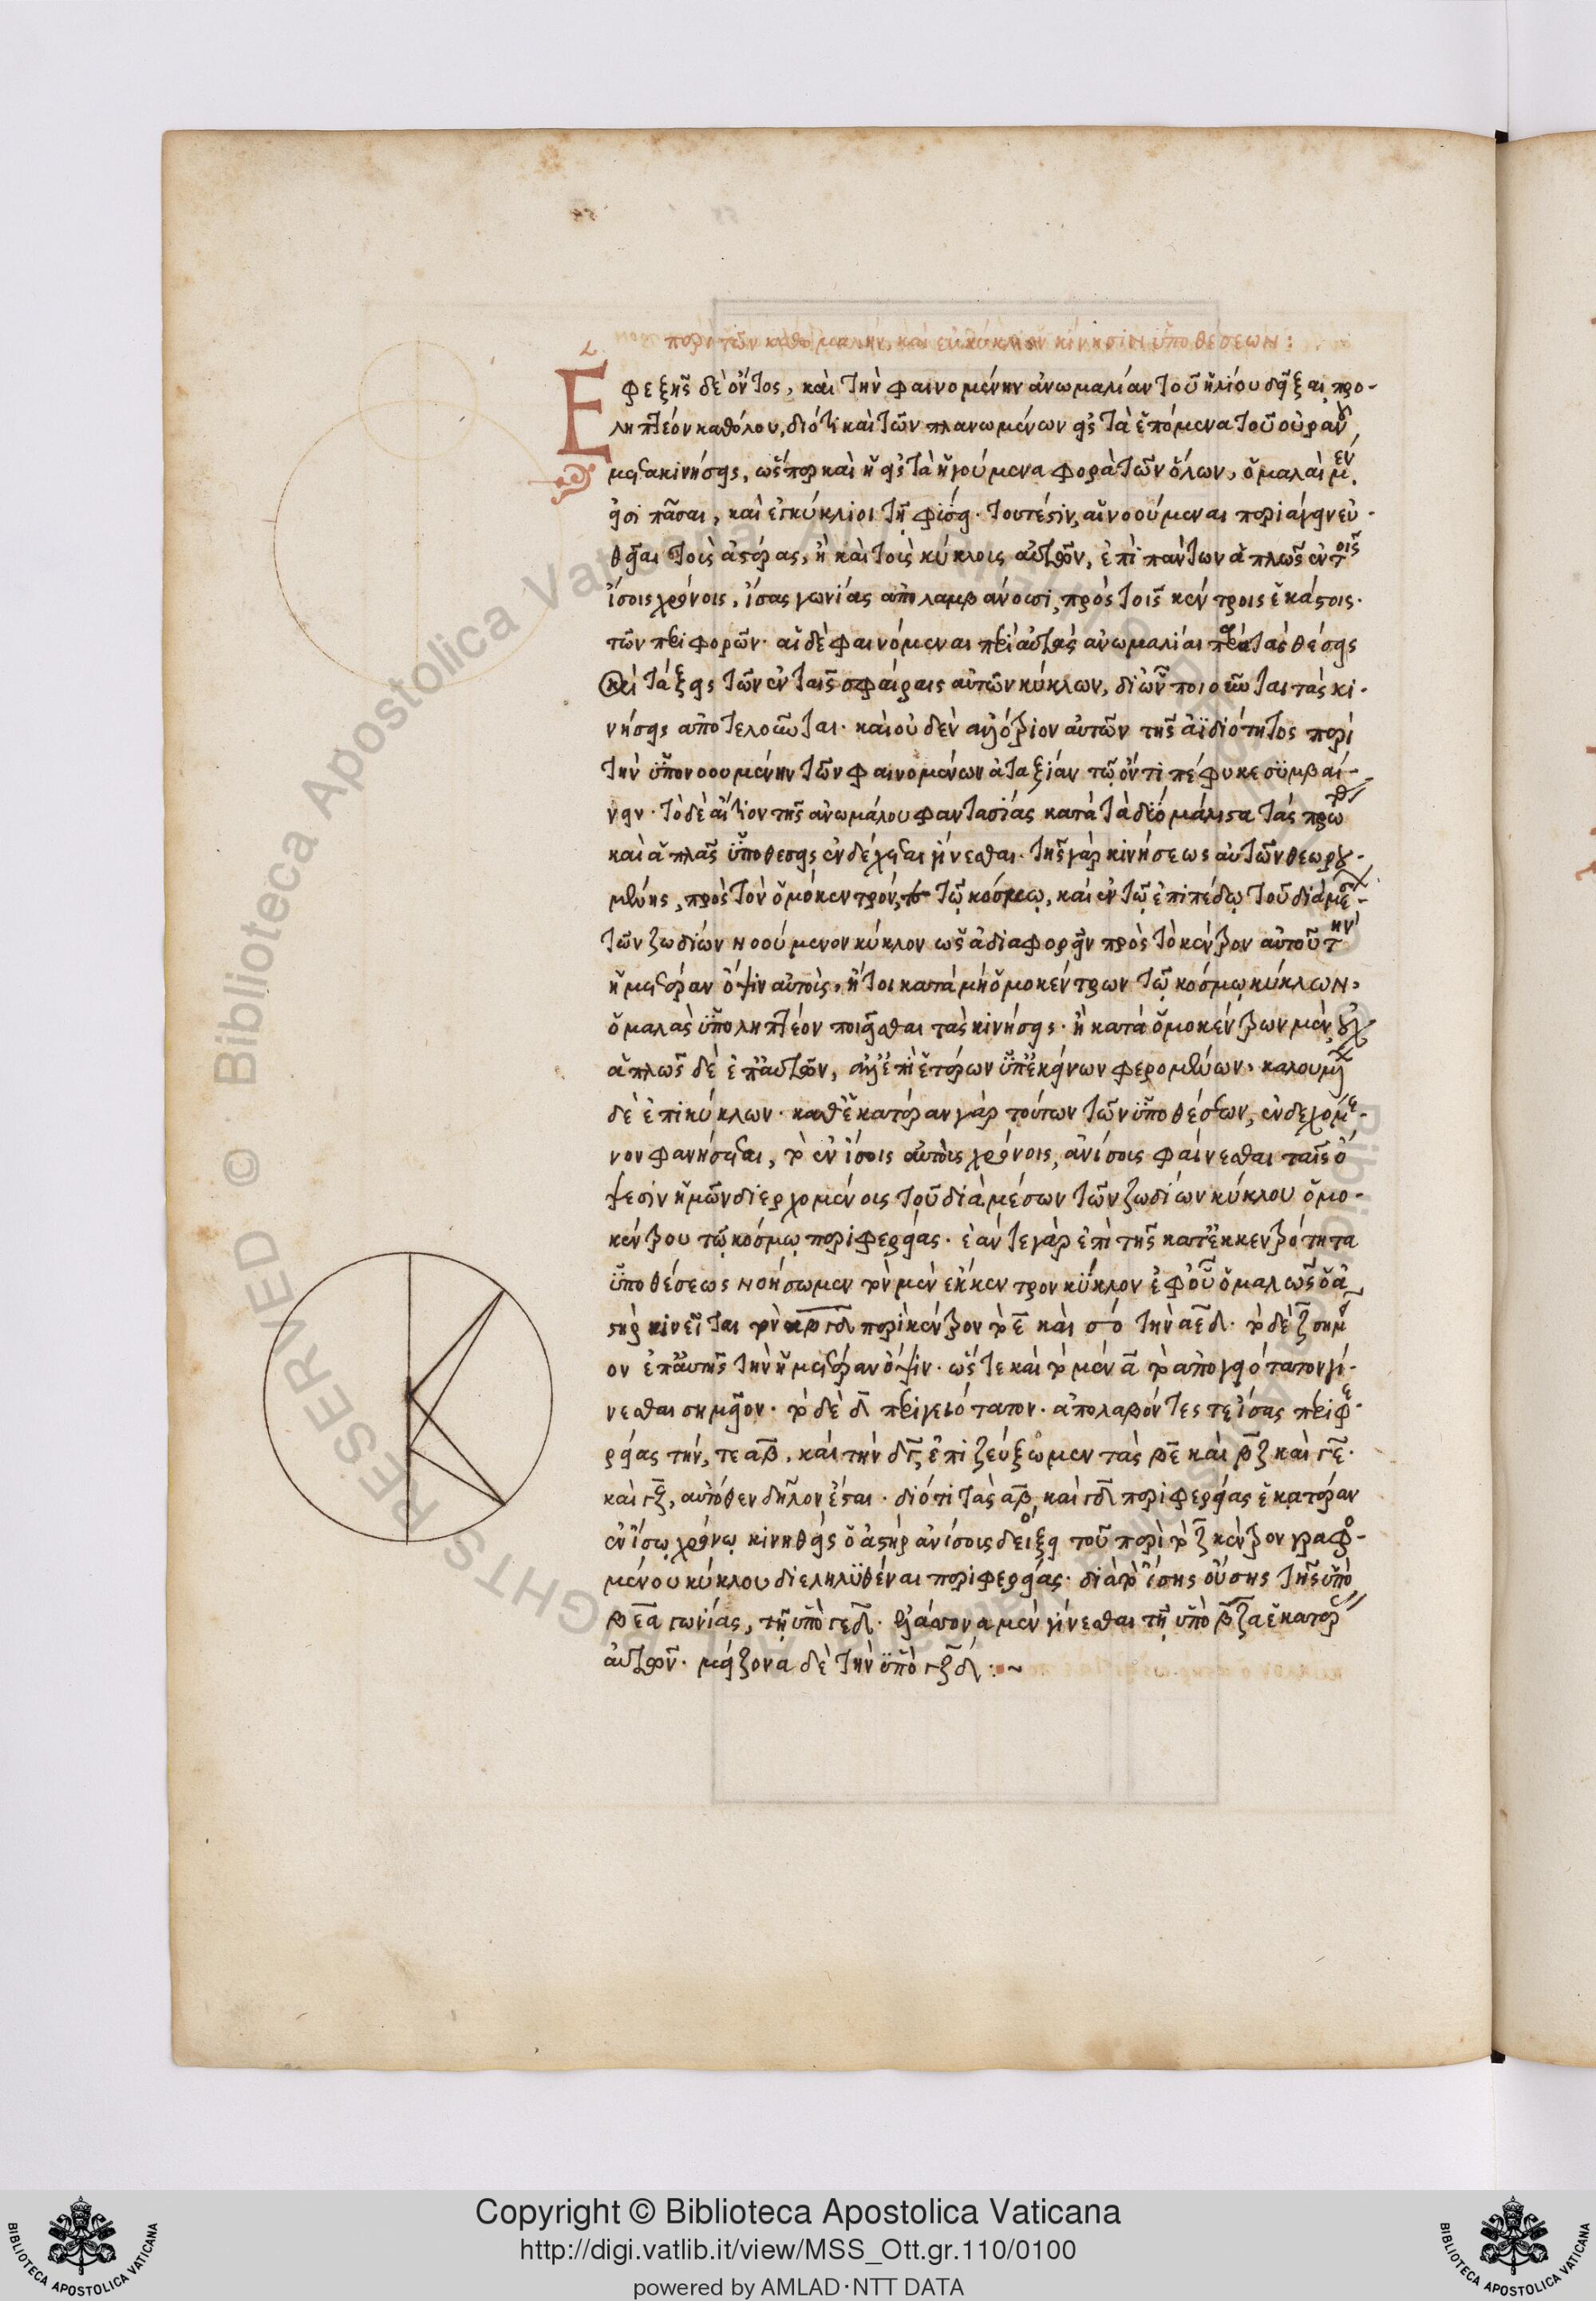 περὶ τῶν καθ' ὁμαλὴν, καὶ ἐγκύκλιον κίνησιν ὑποθέσεων:
Εφεξῆς δὲ ὄντος, καὶ τὴν φαινομένην ἀνωμαλίαν τοῦ ἡλίου δεῖξαι, προ-
ληπτέον καθόλου, διότι καὶ τῶν πλανωμένων εἰς τὰ ἑπόμενα τοῦ οὐρανοῦ
μετακινήσεις, ὥσπερ καὶ ἡ εἰς τὰ ἡγούμενα φορὰ τῶν ὅλων, ὁμαλαὶ μέν
εἰσι πᾶσαι, καὶ ἐγκύκλιοι τῇ φύσει. τουτέστιν, αἱ νοούμεναι περιάγειν εὐ-
θεῖαι τοὺς ἀστέρας, ἢ καὶ τοὺς κύκλους αὐτῶν, ἐπὶ πάντων ἁπλῶς ἐν τοῖς
ἴσοις χρόνοις, ἴσας γωνίας ἀπολαμβάνουσι, πρὸς τοῖς κέντροις ἑκάστοις.
τῶν περιφορῶν. αἱ δὲ φαινόμεναι περὶ αὐτὰς ἀνωμαλίαι παρὰ τὰς θέσεις
καὶ τάξεις τῶν ἐν ταῖς σφαίραις αὐτῶν κύκλων, δι ὧν ποιοῦνται τὰς κι-
νήσεις ἀποτελοῦνται. καὶ οὐδὲν ἀλλότριον αὐτῶν τῆς ἀϊδιότητος περὶ
τὴν ὑπονοουμένην τῶν φαινομένων ἀταξίαν τῷ ὄντι πέφυκε συμβαί-
νειν. τὸ δὲ αἴτιον τῆς ἀνωμάλου φαντασίας κατὰ τὰ δύο μάλιστα τὰς πρώτας
καὶ ἁπλᾶς ὑποθέσεις ἐνδέχεται γίνεσθαι. τῆς γὰρ κινήσεως αὐτῶν θεωρου-
μένης, πρὸς τὸν ὁμόκεντρον, τῷ κόσμῳ, καὶ ἐν τῷ ἐπιπέδῳ τοῦ διὰ μέσων
τῶν ζωδίων νοούμενον κύκλον ὡς ἀδιαφορεῖν πρὸς τὸ κέντρον αὐτοῦ τὴν
ἡμετέραν ὄψιν αὐτοὺς, ἤτοι κατὰ μὴ ὁμοκέντρων τῷ κόσμῳ κύκλων,
ὁμαλὰς ὑποληπτέον ποιεῖσθαι τὰς κινήσεις. ἢ κατὰ ὁμοκέντρων μὲν, οὐχ
ἁπλῶς δὲ ἐπ' αὐτῶν, ἀλλ' ἐπὶ ἑτέρων ὑπ' ἐκείνων φερομένων, καλουμένων
δὲ ἐπικύκλων. καθ' ἑκατέραν γὰρ τούτων τῶν ὑποθέσεων, ἐνδεχόμε-
νον φανήσεται, τὸ ἐν ἴσοις αὐτοὺς χρόνοις, ἀνίσους φαίνεσθαι ταῖς ὄ-
ψεσιν ἡμῶν διερχομένους τοῦ διὰ μέσων τῶν ζωδίων κύκλου ὁμο-
κέντρου τῷ κόσμῳ περιφερείας. ἐάν τε γὰρ ἐπὶ τῆς κατ' ἐκκεντρότητα
ὑποθέσεως νοήσωμεν τὸν μὲν ἔκκεντρον κύκλον ἐφ' οὗ ὁμαλῶς ὁ ἀ-
στὴρ κινεῖται τὸν αβγδ περὶ κέντρον τὸ ε καὶ διάμετρον τὴν αεδ. τὸ δὲ ζ σημεῖ-
ον ἐπ' αὐτῆς τὴν ἡμετέραν ὄψιν. ὥστε καὶ τὸ μὲν α τὸ ἀπογειότατον γί-
νεσθαι σημεῖον. τὸ δὲ δ περιγειότατον. ἀπολαβόντες τε ἴσας περιφε-
ρείας τήν, τε αβ, καὶ τὴν δγ, ἐπιζεύξωμεν τὰς βε καὶ βζ καὶ γε.
καὶ γζ, αὐτόθεν δῆλον ἔσται. διότι τὰς αβ, καὶ γδ περιφερείας ἑκατέραν
ἐν ἴσῳ χρόνῳ κινηθεὶς ὁ ἀστὴρ ἀνίσους δόξει τοῦ περὶ τὸ ζ κέντρον γραφο-
μένου κύκλου διεληλυθέναι περιφερείας. διὰ τὸ ἴσης οὔσης τῆς ὑπὸ
βεα γωνίας, τῇ ὑπὸ γεδ. ἐλάσσονα μὲν γίνεσθαι τὴν ὑπὸ βζα ἑκατέρας
αὐτῶν. μείζονα δὲ τὴν ὑπὸ γζδ :~
Copyright © Biblioteca Apostolica Vaticana
http://digi.vatlib.it/view/MSS_Ott.gr.110/0100
powered by AMLAD·NTT DATA
BIBLIOTECA APOSTOLICA VATICANA
BIBLIOTECA APOSTOLICA VATICANA